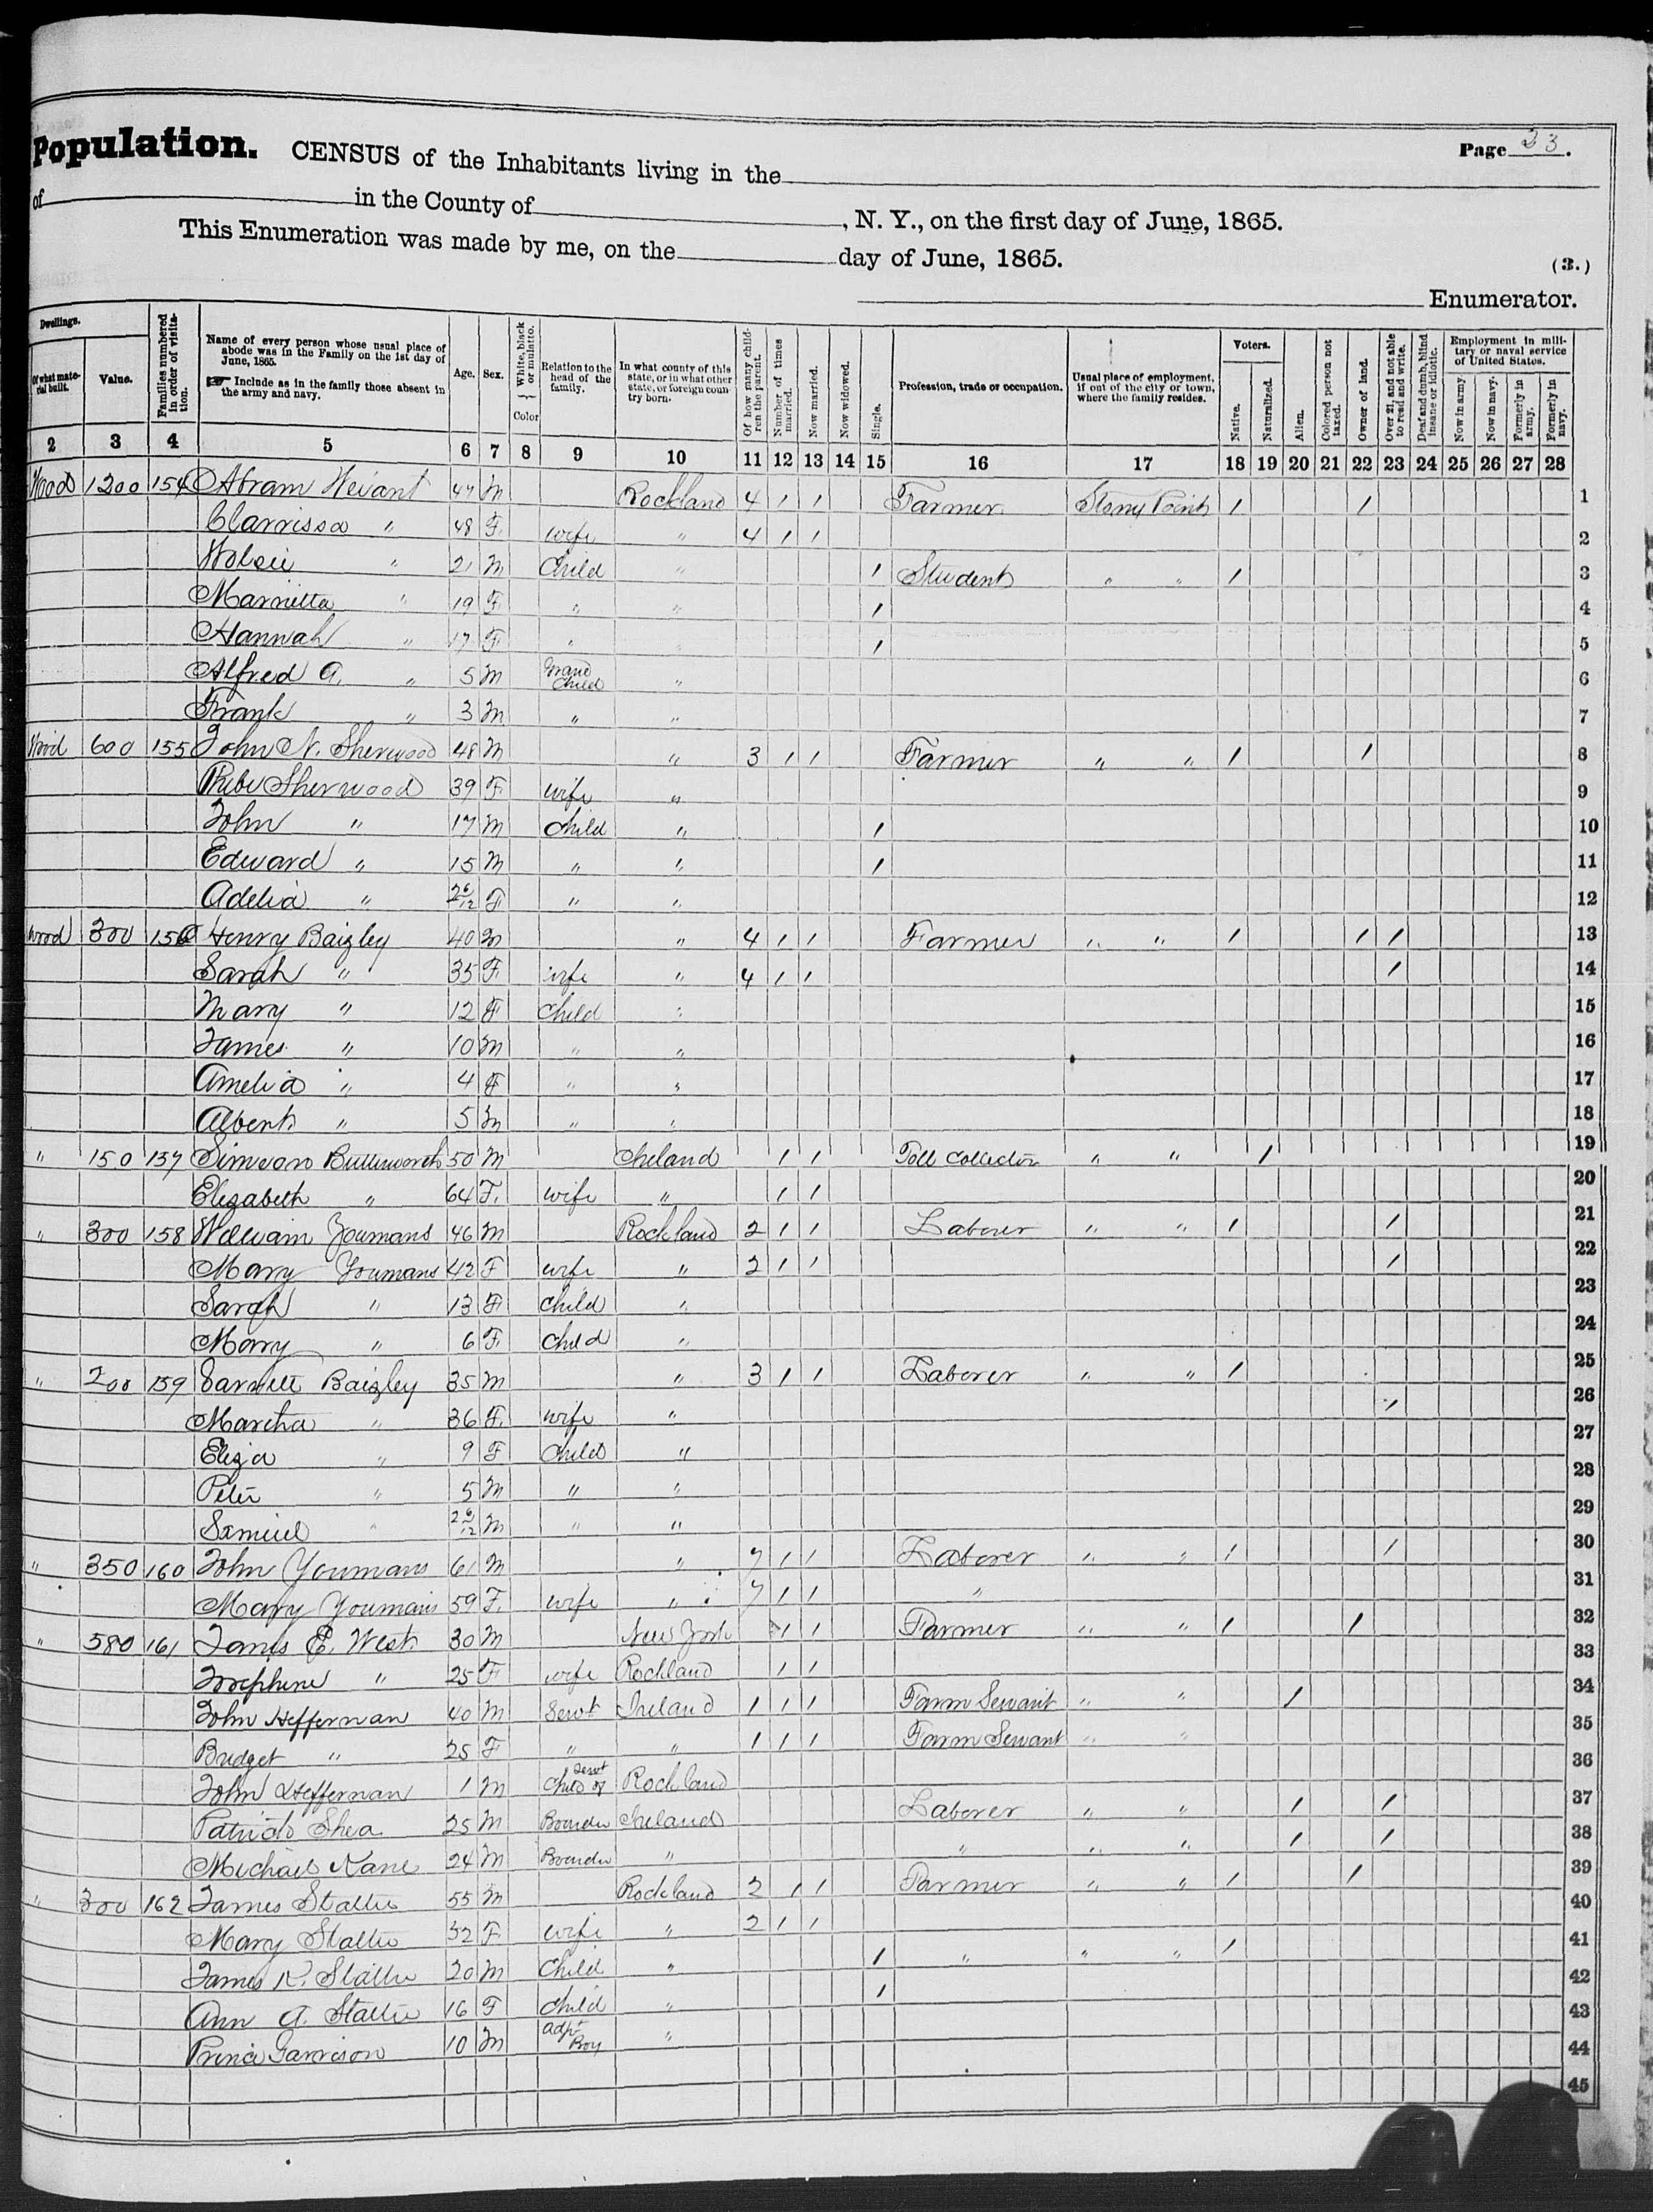 Population. CENSUS of the Inhabitants living in the
Page 23.
of in the County of , N. Y., on the first day of June, 1865.
This Enumeration was made by me, on the day of June, 1865.
(3.)
Enumerator.
Dwellings.
Of what material built.
Value.
Families numbered in order of visitation.
Name of every person whose usual place of abode was in the Family on the 1st day of June, 1865.
☞ Include as in the family those absent in the army and navy.
Age.
Sex.
White, black or mulatto.
Color
Relation to the head of the family.
In what county of this state, or in what other state, or foreign country born.
Of how many children the parent.
Number of times married.
Now married.
Now widowed.
Single.
Profession, trade or occupation.
Usual place of employment, if out of the city or town, where the family resides.
Voters.
Native.
Naturalized.
Alien.
Colored person not taxed.
Owner of land.
Over 21, and not able to read and write.
Deaf and dumb, blind insane or idiotic.
Employment in military or naval service of United States.
Now in army
Now in navy.
Formerly in army.
Formerly in navy.
2 3 4 5 6 7 8 9 10 11 12 13 14 15 16 17 18 19 20 21 22 23 24 25 26 27 28
Wood 1200 154 Abram 47 M Rockland 4 1 1 Farmer Stony Point 1 1 1
Clarrissa " 48 F. wife " 4 1 1 2
" 21 M Child " 1 Student " " 1 3
Marrietta " 19 F " " 1 4
Hannah " 17 F " " 1 5
Alfred A. " 5 M Grand Child " 6
Frank " 3 M " " 7
Wood 600 155 John N. Sherwood 48 M " 3 1 1 Farmer " " 1 1 8
Phebe Sherwood 39 F wife " 9
John " 17 M Child " 1 10
Edward " 15 M " " 1 11
Adelia " 2 6/12 F " " 12
Wood 300 156 Henry Baizley 40 M " 4 1 1 Farmer " " 1 1 1 13
Sarah " 35 F. wife " 4 1 1 1 14
Mary " 12 F child " 15
James " 10 M " " 16
Amelia " 4 F " " 17
Albert " 5 M " " 18
" 150 157 Simeon Butterworth 50 M Ireland 1 1 Toll Collector " " 1 19
Elizabeth " 64 F. wife " 1 1 20
" 300 158 William Youmans 46 M Rockland 2 1 1 Laborer " " 1 1 21
Mary Youmans 42 F wife " 2 1 1 1 22
Sarah " 13 F child " 23
Mary " 6 F. Child " 24
" 200 159 Baizley 35 M " 3 1 1 Laborer " " 1 25
Martha " 36 F. wife " 1 26
Eliza " 9 F Child " 27
Peter " 5 M " " 28
Samuel " M " " 29
" 350 160 John Youmans 61 M " 7 1 1 Laborer " " 1 1 30
Mary Youmans 59 F. wife " 7 1 1 " 31
" 580 161 James E. West 30 M New York 1 1 Farmer " " 1 1 32
Josephine " 25 F wife Rockland 1 1 33
John Heffernan 40 M Servt Ireland 1 1 1 Farm Servant " " 1 34
Bridget " 25 F " " 1 1 1 Farm Servant " " 35
John Heffernan 1 M Child of Servt Rockland 36
Patrick Shea 25 M Boarder Ireland Laborer " " 1 1 37
Michael Kane 24 M Boarder " " " " 1 1 38
" 300 162 James 55 M Rockland 2 1 1 Farmer " " 1 1 39
Mary 32 F wife " 2 1 1 40
James 20 M Child " 1 " " " 1 41
Ann A. 16 F child " 1 42
Garrison 10 M Adpt Boy " 43
44
45